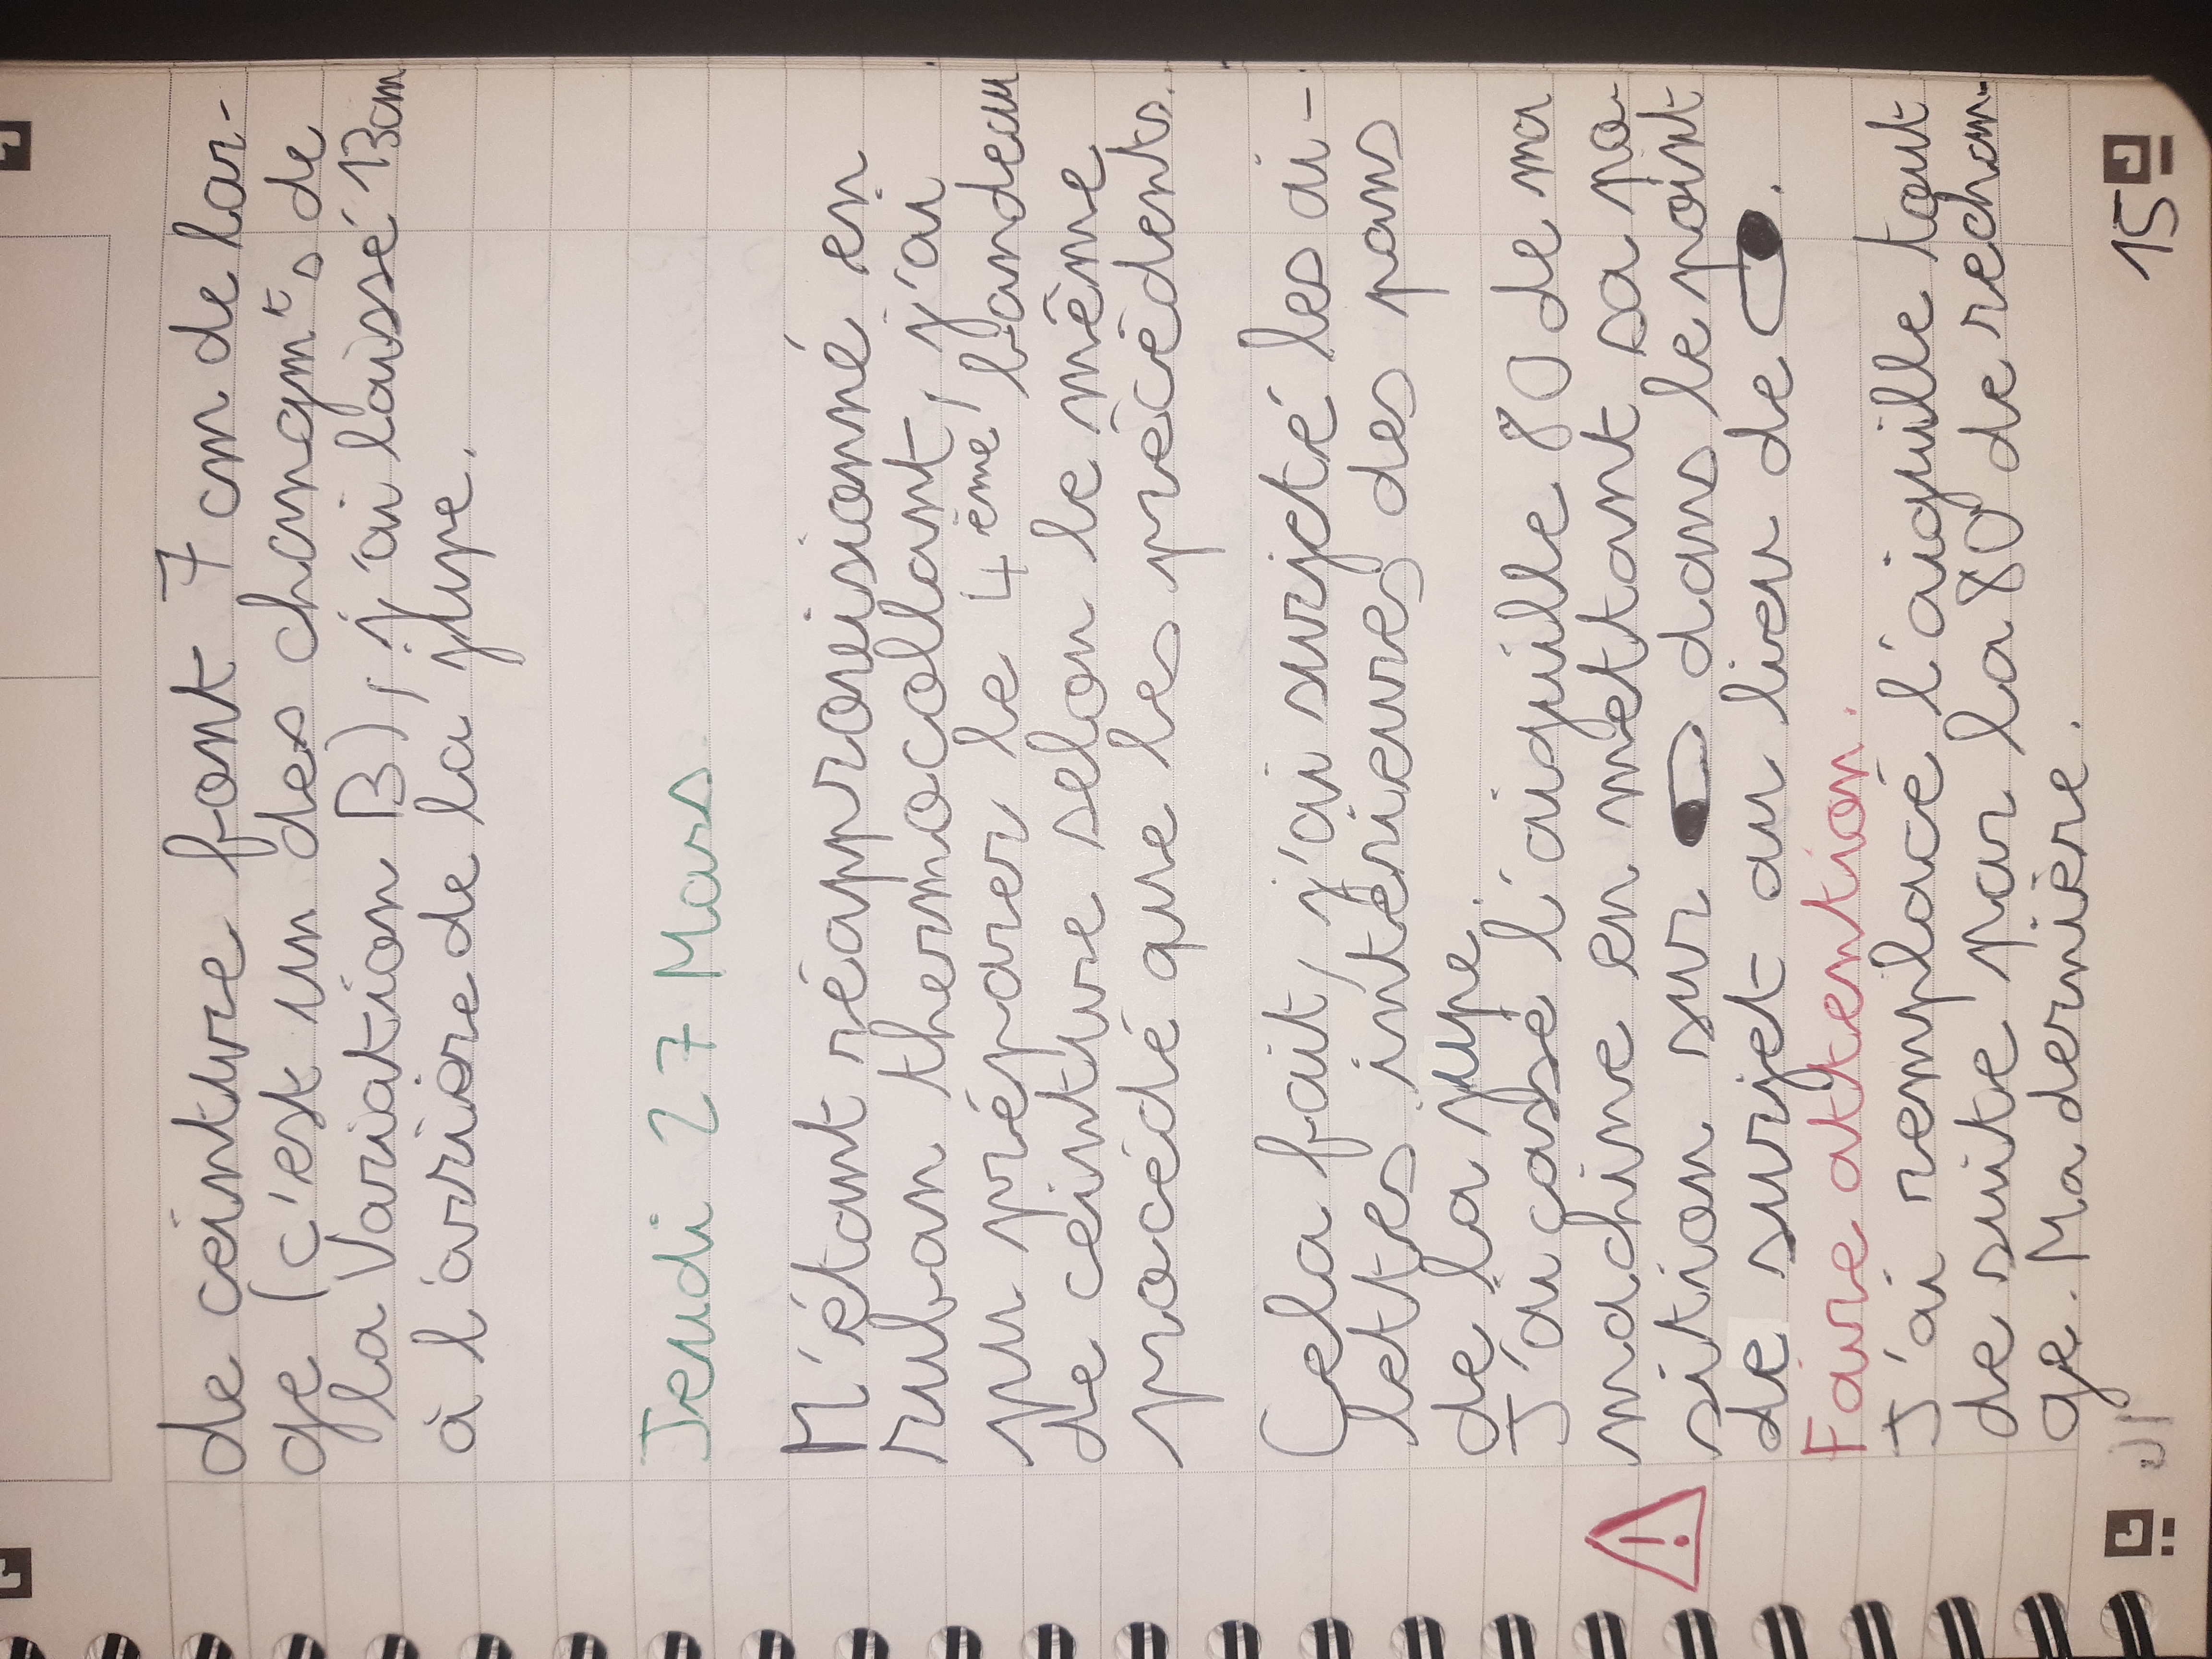 de ceinture font 7 cm de lar-
ge (c'est un des changmts de
la Variation B), j'ai laissé 13cm
à l'arrière de la jupe.
Jeudi 27 Mars.
M'étant réaprovisionné en
ruban thermocollant, j'ai
pu préparer le 4ème bandeau
de ceinture selon le même
procédé que les précédents.
Cela fait, j'ai surjeté les ai-
lettes intérieures des pans
de la jupe.
J'ai cassé l'aiguille 80 de ma
machine en mettant sa po-
sition sur dans le point
de surjet au lieu de .
Faire attention.
J'ai remplacé l'aiguille tout
de suite par la 80 de rechan-
ge. Ma dernière.
15